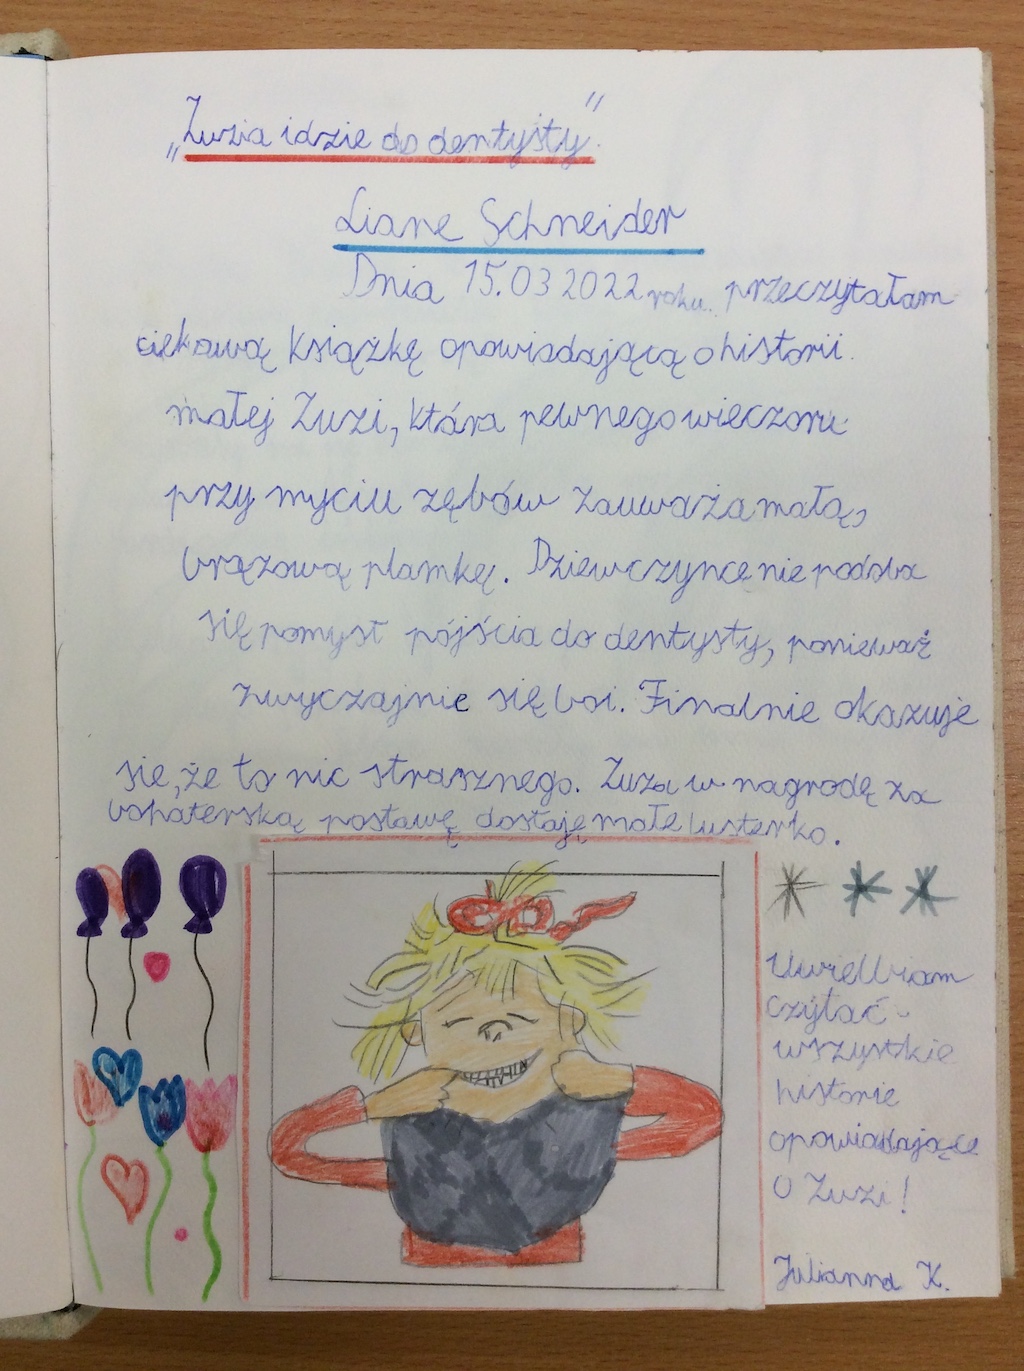 „Zuzia idzie do dentysty”
Liane Schneider
Dnia 15.03 2022 roku. przeczytałam
ciekawą książkę opowiadającą o historii
małej Zuzi, która pewnego wieczoru
przy myciu zębów zauważa małą,
brązową plamkę. Dziewczynce nie podoba
się pomysł pójścia do dentysty, ponieważ
zwyczajnie się boi. Finalnie okazuje
sie, że to nic strasznego. Zuza w nagrodę za
bohaterską postawę dostaję małe lusterko.
Uwielbiam
czytać
wszystkie
historie
opowiadające
O Zuzi!
Julianna K.